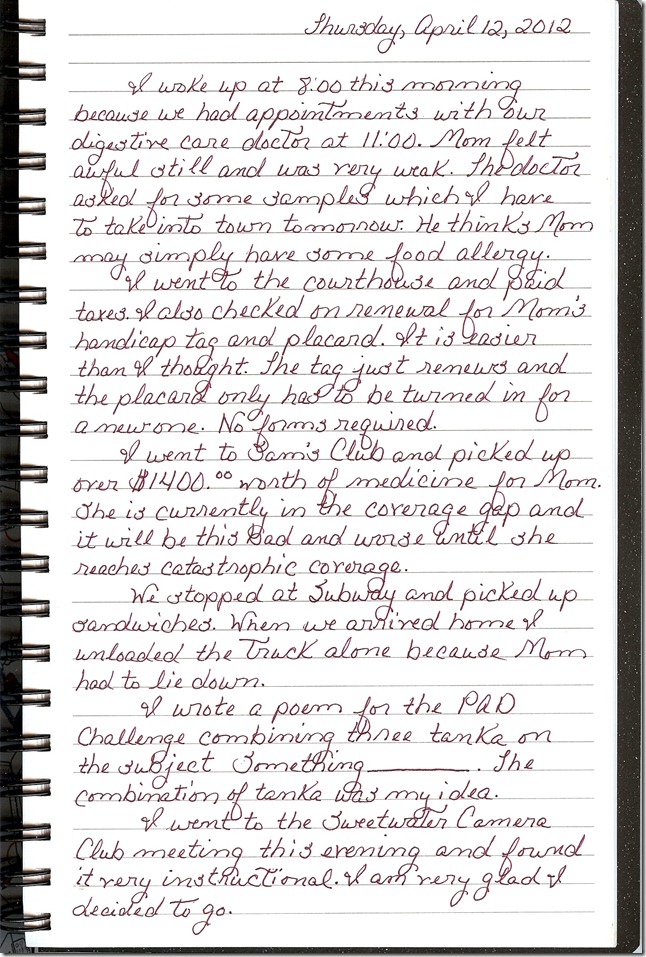 Thursday, April 12, 2012
I woke up at 8:00 this morning
because we had appointments with our
digestive care doctor at 11:00. Mom felt
awful still and was very weak. The doctor
asked for some samples which I have
to take into town tomorrow. He thinks Mom
may simply have some food allergy.
I went to the courthouse and paid
taxes. I also checked on renewal for Mom's
handicap tag and placard. It is easier
than I thought. The tag just renews and
the placard only has to be turned in for
a new one. No forms required.
I went to Sam's Club and picked up
over $1400.00 worth of medicine for Mom.
She is currently in the coverage gap and
it will be this bad and worse until she
reaches catastrophic coverage.
We stopped at Subway and picked up
sandwiches. When we arrived home I
unloaded the truck alone because Mom
had to lie down.
I wrote a poem for the PAD
Challenge combining three tanka on
the subject Something ________. The
combination of tanka was my idea.
I went to the Sweetwater Camera
Club meeting this evening and found
it very instructional. I am very glad I
decided to go.